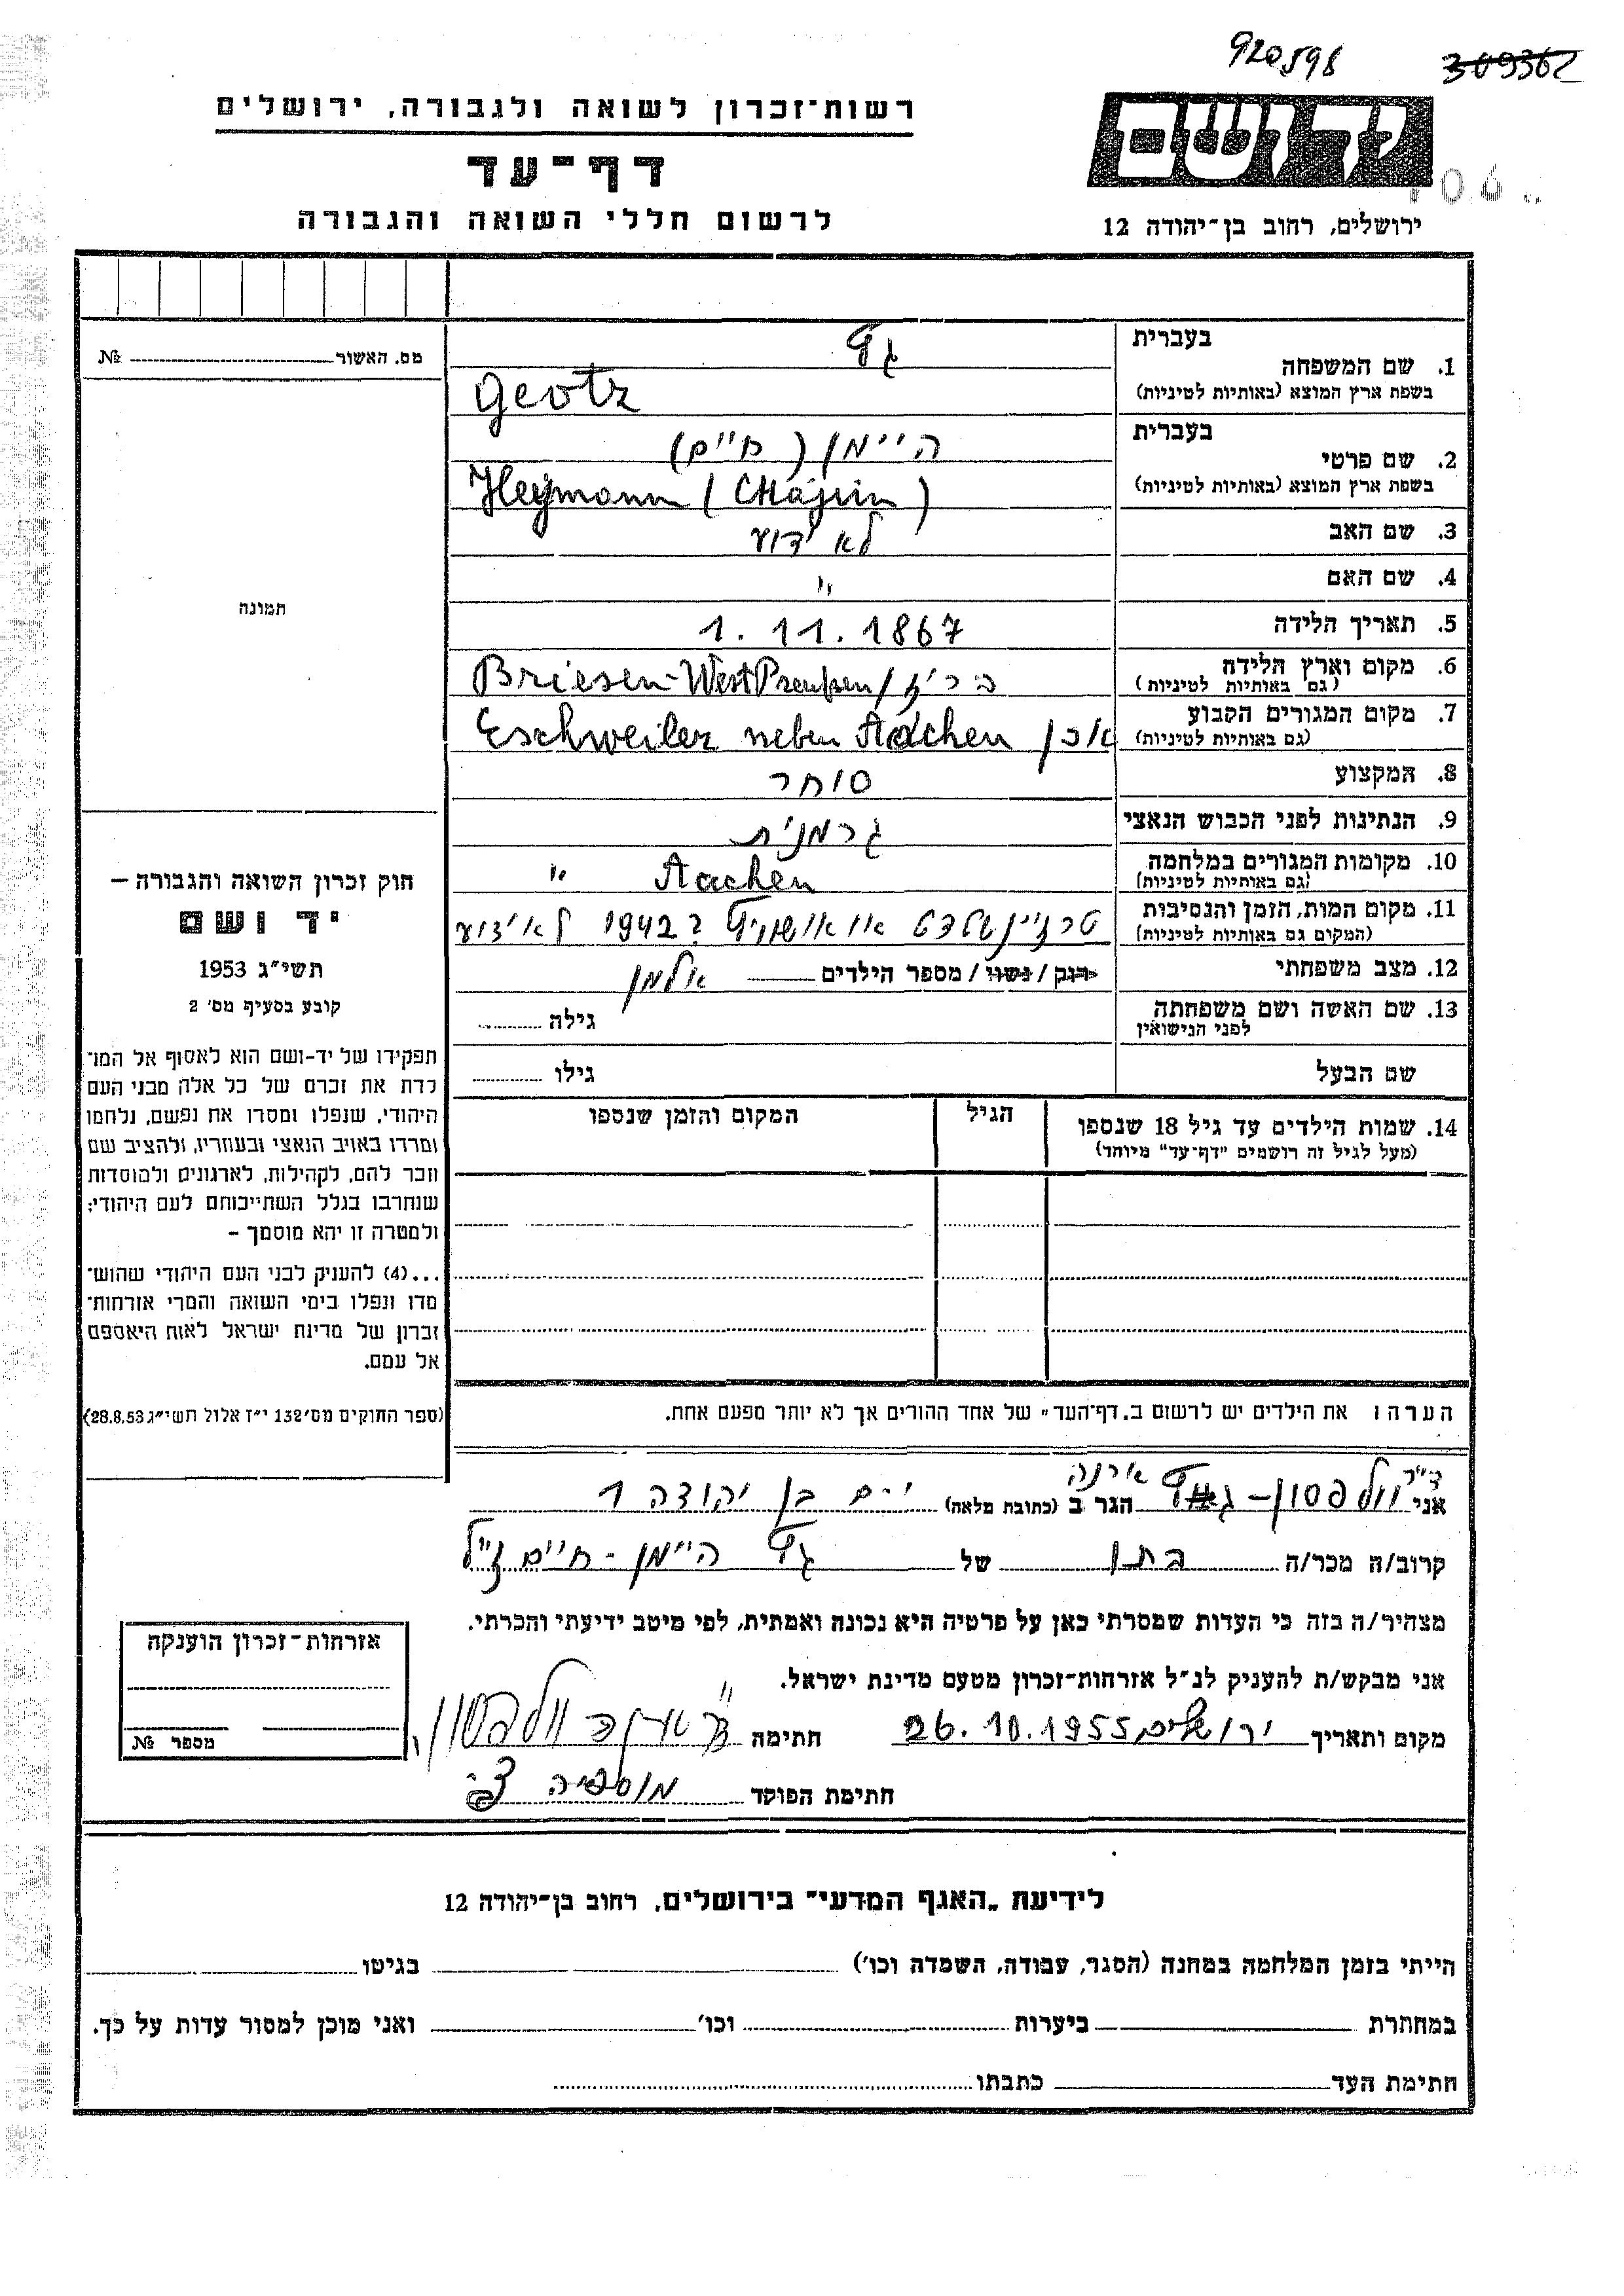 920598 309362
רשות־זכרון לשואה ולגבורה, ירושלים
ידושם
דף־עד
לרשום חללי השואה והגבורה
ירושלים, רחוב בן־יהודה 12
מס. האשור № 
בעברית
1. שם המשפחה
גץ
בשפת ארץ המוצא (באותיות לטיניות)
Geotz
בעברית
2. שם פרטי היימן (חיים)
בשפת ארץ המוצא (באותיות לטיניות) Heymann (Chajim)
3. שם האב לא ידוע
4. שם האם "
5. תאריך הלידה 1.11.1867
6. מקום וארץ הלידה Briesen-WestPreußen /
(גם באותיות לטיניות)
7. מקום המגורים הקבוע אכן Eschweiler neben Aachen
(גם באותיות לטיניות)
8. המקצוע סוחר
9. הנתינות לפני הכבוש הנאצי גרמנית
10. מקומות המגורים במלחמה Aachen "
(גם באותיות לטיניות)
11. מקום המות, הזמן והנסיבות טרזיינשטדט או אושויץ ? 1942 לא ידוע
(המקום גם באותיות לטיניות)
12. מצב משפחתי רווק / נשוי / מספר הילדים אלמן
13. שם האשה ושם משפחתה גילה
לפני הנישואין
שם הבעל גילו
14. שמות הילדים עד גיל 18 שנספו הגיל המקום והזמן שנספו
(מעל לגיל זה רושמים "דף־עד" מיוחד)
תמונה
חוק זכרון השואה והגבורה —
יד ושם
תשי"ג 1953
קובע בסעיף מס' 2
תפקידו של יד-ושם הוא לאסוף אל המו־
לדת את זכרם של כל אלה מבני העם
היהודי, שנפלו ומסרו את נפשם, נלחמו
ומרדו באויב הנאצי ובעוזריו, ולהציב שם
וזכר להם, לקהילות, לארגונים ולמוסדות
שנחרבו בגלל השתייכותם לעם היהודי;
ולמטרה זו יהא מוסמך –
...(4) להעניק לבני העם היהודי שהוש־
מדו ונפלו בימי השואה והמרי אזרחות־
זכרון של מדינת ישראל לאות היאספם
אל עמם.
(ספר החוקים מס' 132 י"ז אלול תשי"ג 28.8.53)
הערה: את הילדים יש לרשום ב„דף־העד" של אחד ההורים אך לא יותר מפעם אחת.
אני ד"ר וולפסון – גץ אינה הגר ב (כתובת מלאה) י-ם בן יהודה 1
קרוב/ה מכר/ה בתו של גץ היימן - חיים ז"ל
מצהיר/ה בזה כי העדות שמסרתי כאן על פרטיה היא נכונה ואמתית, לפי מיטב ידיעתי והכרתי.
אני מבקש/ת להעניק לנ"ל אזרחות־זכרון מטעם מדינת ישראל.
מקום ותאריך ירושלים, 26.10.1955 חתימה
חתימת הפוקד
אזרחות־זכרון הוענקה
מספר №
לידיעת „האגף המדעי" בירושלים, רחוב בן־יהודה 12
הייתי בזמן המלחמה במחנה (הסגר, עבודה, השמדה וכו') בגיטו
במחתרת ביערות וכו' ואני מוכן למסור עדות על כך.
חתימת העד כתבתו